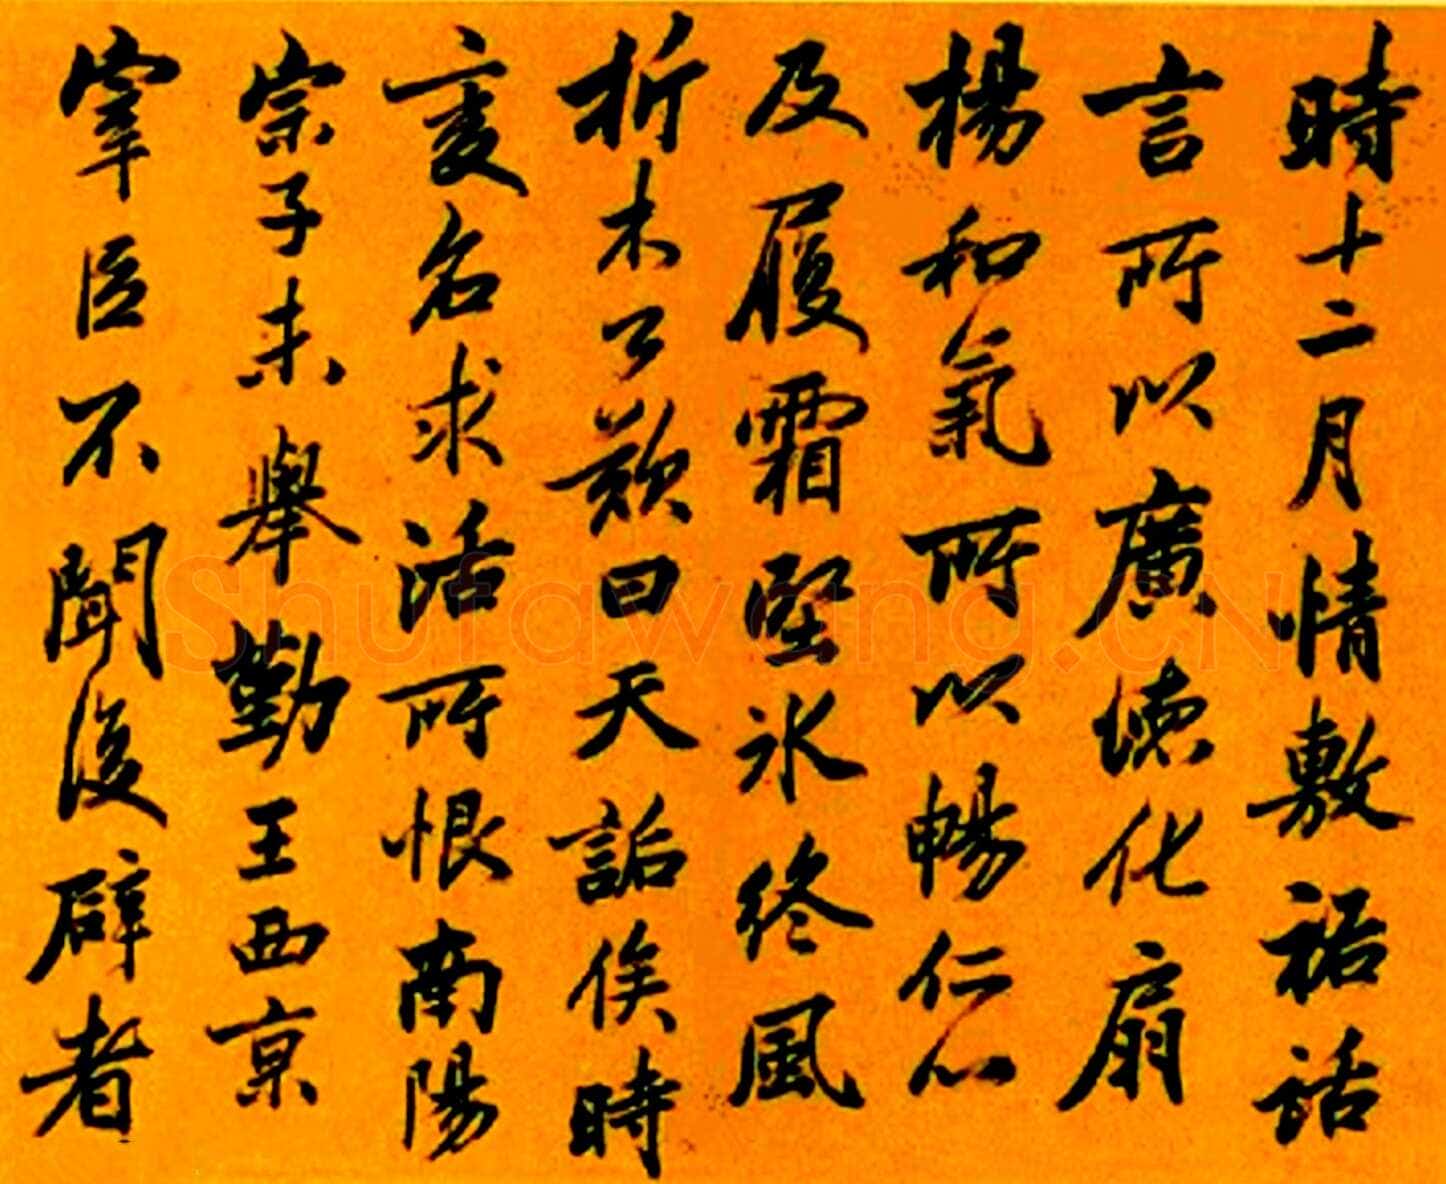 時十二月情敷祏話
言所以廣德化扇
楊和氣所以暢仁心
及履霜堅冰終風
折木乃歎曰天詬俟時
変名求活所恨南陽
宗子未舉勤王西京
宰臣不聞復辟者
Shufawang.CN